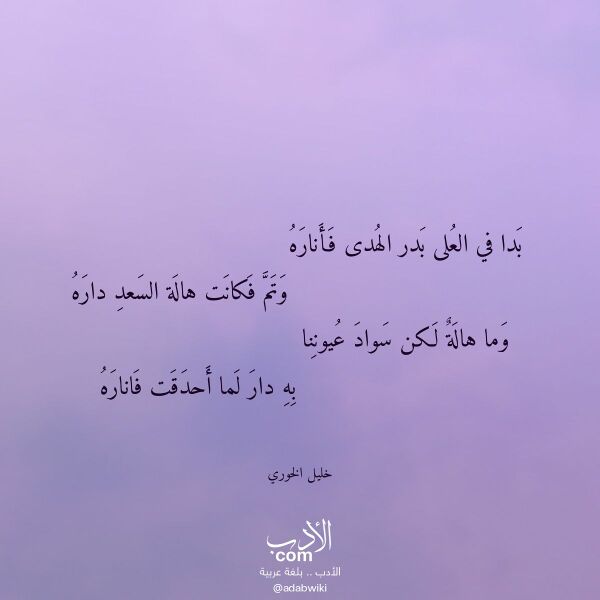 بَدا في العُلى بَدر الهُدى فَأَنارَهُ
وَتَمَّ فَكانَت هالَة السَعدِ دارَهُ
وَما هالَةٌ لَكن سَوادَ عُيونِنا
بِهِ دارَ لَما أَحدَقَت فَانارَهُ
خليل الخوري
الأدب
.com
الأدب .. بلغة عربية
@adabwiki